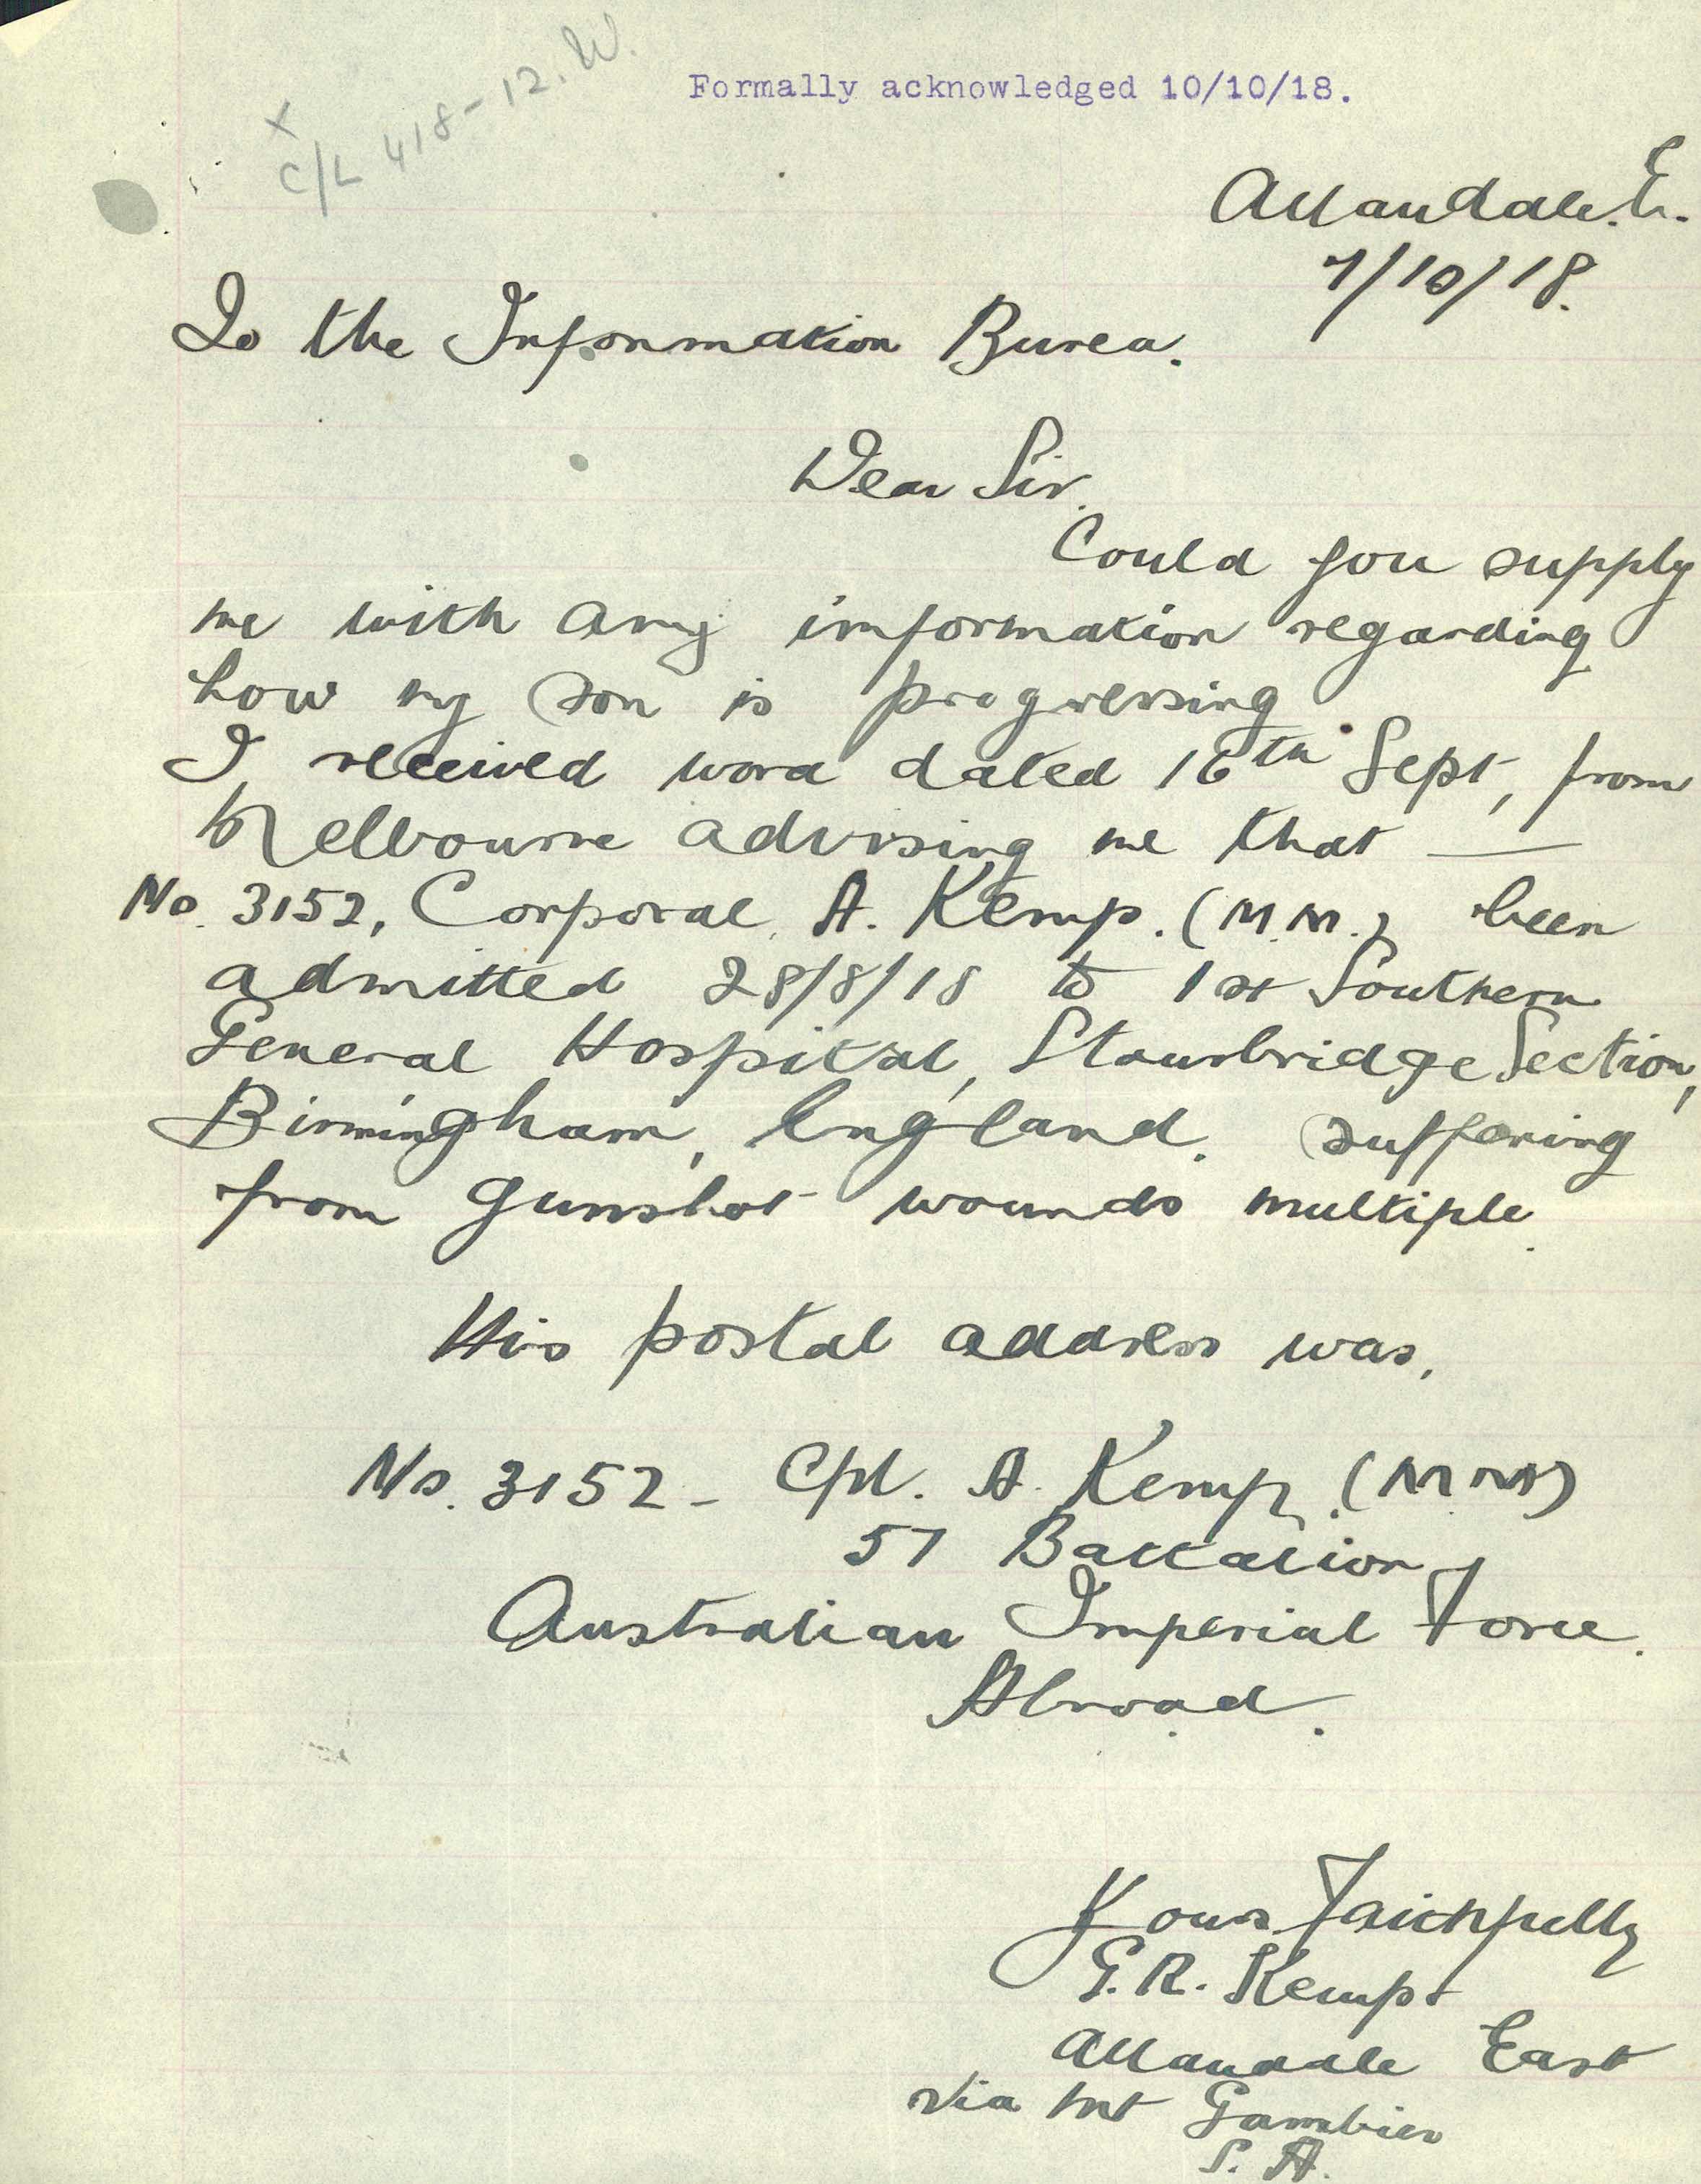 Formally acknowledged 10/10/18.
X
C/L 418-12. W.
Allandale. E.
7/10/18.
To the Information Burea.
Dear Sir.
Could you supply
me with any information regarding
how my son is progressing
I received word dated 16th Sept, from
Melbourne advising me that —
No. 3152, Corporal. A. Kemp. (M.M.) been
admitted 28/8/18 to 1st Southern
General Hospital, Stourbridge Section,
Birmingham, England. suffering
from gunshot wounds multiple.
His postal address was,
No. 3152 - Cpl. A. Kemp. (M.M)
57 Battalion
Australian Imperial Force.
Abroad.
Yours Faithfully
G. R. Kemp.
Allandale East
via Mt Gambier
S. A.